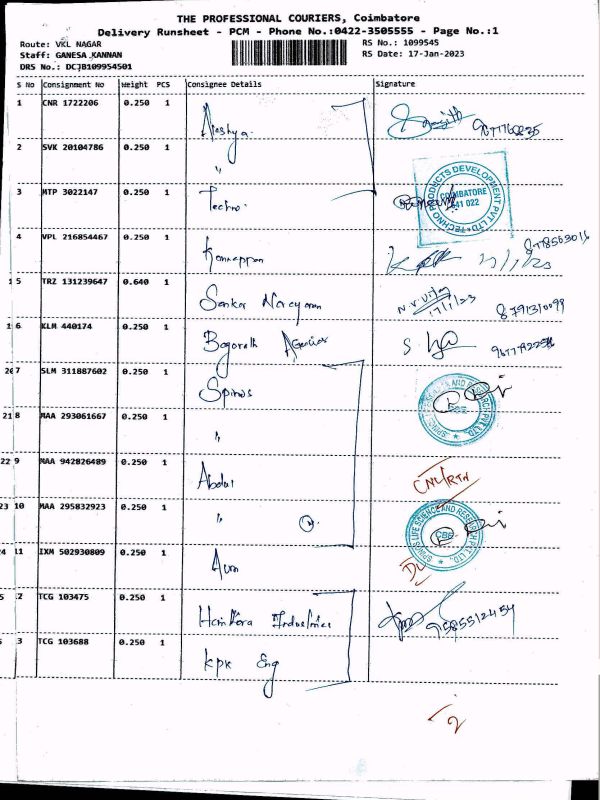 THE PROFESSIONAL COURIERS, Coimbatore
Delivery Runsheet - PCM - Phone No.:0422-3505555 - Page No.:1
Route: VKL NAGAR RS No.: 1099545
Staff: GANESA KANNAN RS Date: 17-Jan-2023
DRS No.: DCJB109954501
S No Consignment No Weight PCS Consignee Details Signature
1 CNR 1722206 0.250 1
2 SVK 20104786 0.250 1 "
3 MTP 3022147 0.250 1 Techno
TECHNO PRODUCTS DEVELOPMENT PVT LTD
COIMBATORE
641 022
4 VPL 216854467 0.250 1 Kannappan
15 TRZ 131239647 0.640 1 Sankar Narayanan 17/1/23
16 KLM 440174 0.250 1 Bagorath Agencies
207 SLM 311887602 0.250 1 Spinos
218 MAA 293061667 0.250 1 "
229 MAA 942826489 0.250 1 Abdul CNL/RTN
23 10 MAA 295832923 0.250 1 "
SPINOS LIFE SCIENCE AND RESEARCH PVT LTD.
CBE
24 11 IXM 502930809 0.250 1 DL
5 2 TCG 103475 0.250 1 Industries 9585512454
3 TCG 103688 0.250 1 KPK Eng
2